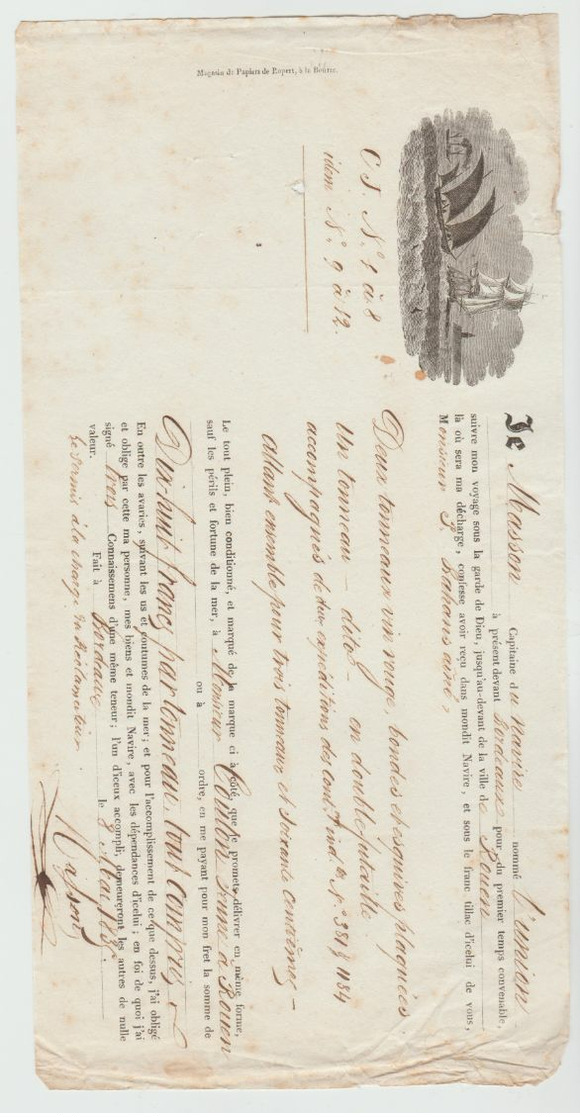 Magasin de Papiers de Rupert, à la Bourse.
C J. N.º 1 à 8
idem N.º 9 à 12.
Je Masson Capitaine du navire nommé l'union
à présent devant Bordeaux pour du premier temps convenable,
suivre mon voyage sous la garde de Dieu, jusqu'au-devant de la ville de Rouen
là où sera ma décharge, confesse avoir reçu dans mondit Navire, et sous le franc tillac d'icelui de vous,
Monsieur aîné,
Deux tonneaux vin rouge, bondes et esquives plaquées
Un tonneau — dito — en double futaille
accompagnés de expéditions des 1184
allant ensemble pour trois tonneaux et soixante centièmes —
Le tout plein, bien conditionné, et marqué de la marque ci à côté, que je promets délivrer en même forme,
sauf les périls et fortune de la mer, à Monsieur Coulon à Rouen
ou à ordre, en me payant pour mon fret la somme de
Dix-huit francs par tonneau, tout compris
En outre les avaries, suivant les us et coutumes de la mer; et pour l'accomplissement de ce que dessus, j'ai obligé
et oblige par cette ma personne, mes biens et mondit Navire, avec les dépendances d'icelui; en foi de quoi j'ai
signé trois Connaissemens d'une même teneur; l'un d'iceux accompli, demeureront les autres de nulle
valeur. Fait à Bordeaux le 8
Le permis à la charge du Réclamateur.
Masson